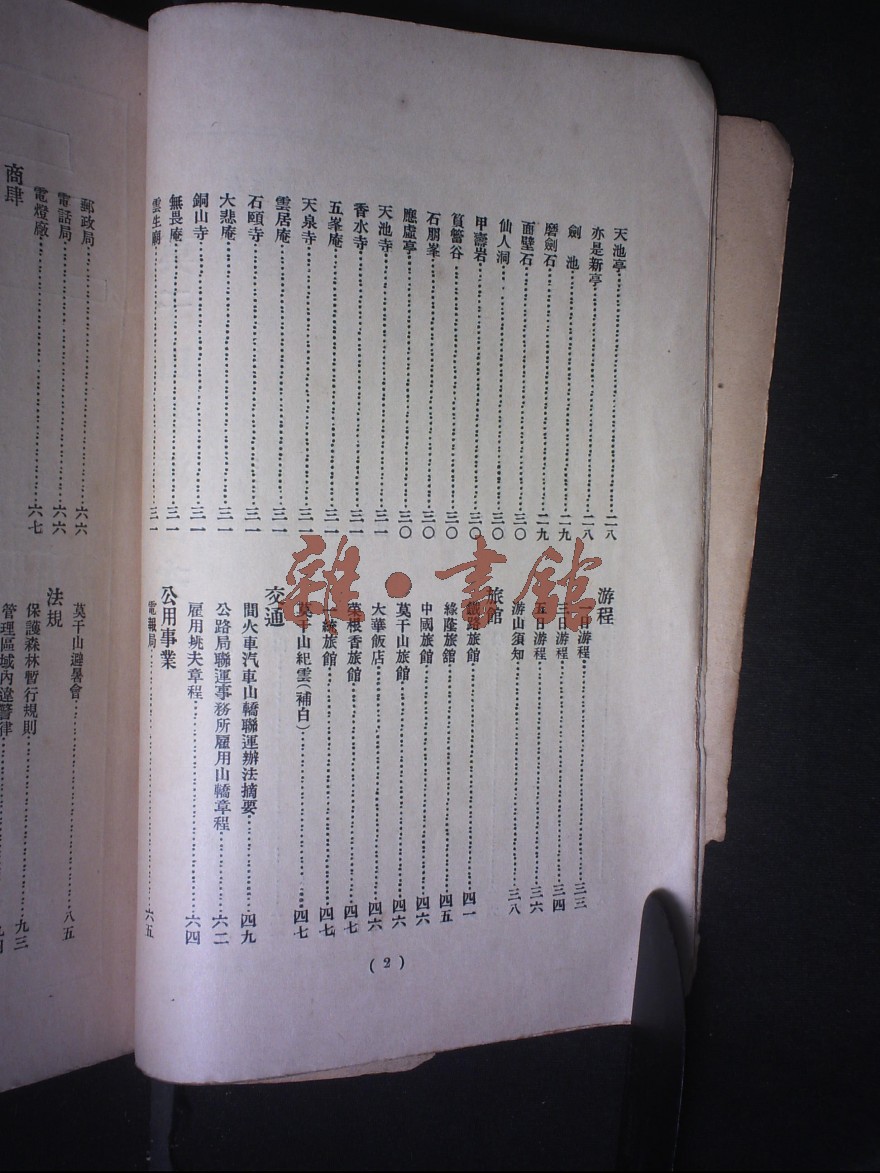 天池亭……二八
亦是新亭……二八
劍 池……二九
磨劍石……二九
面壁石……三〇
仙人洞……三〇
甲壽岩……三〇
篔簹谷……三〇
石朋峯……三〇
應虛亭……三〇
天池寺……三一
香水寺……三一
五峯庵……三一
天泉寺……三一
雲居庵……三一
石頤寺……三一
大悲庵……三一
銅山寺……三一
無畏庵……三一
雲生廟……三一
游程
一日游程……三三
三日游程……三四
五日游程……三六
游山須知……三八
旅館
鐵路旅館……四一
綠蔭旅館……四五
中國旅館……四六
莫干山旅館……四六
大華飯店……四六
菜根香旅館……四七
一統旅館……四七
莫干山紀雲(補白)……四七
交通
間火車汽車山轎聯運辦法摘要……四九
公路局聯運事務所雇用山轎章程……六二
雇用挑夫章程……六四
公用事業
電報局……六五
(2)
郵政局……六六
電話局……六六
電燈廠……六七
商肆
莫干山避暑會……八五
法規
保護森林暫行規則……九三
管理區域內違警律
雜·書館